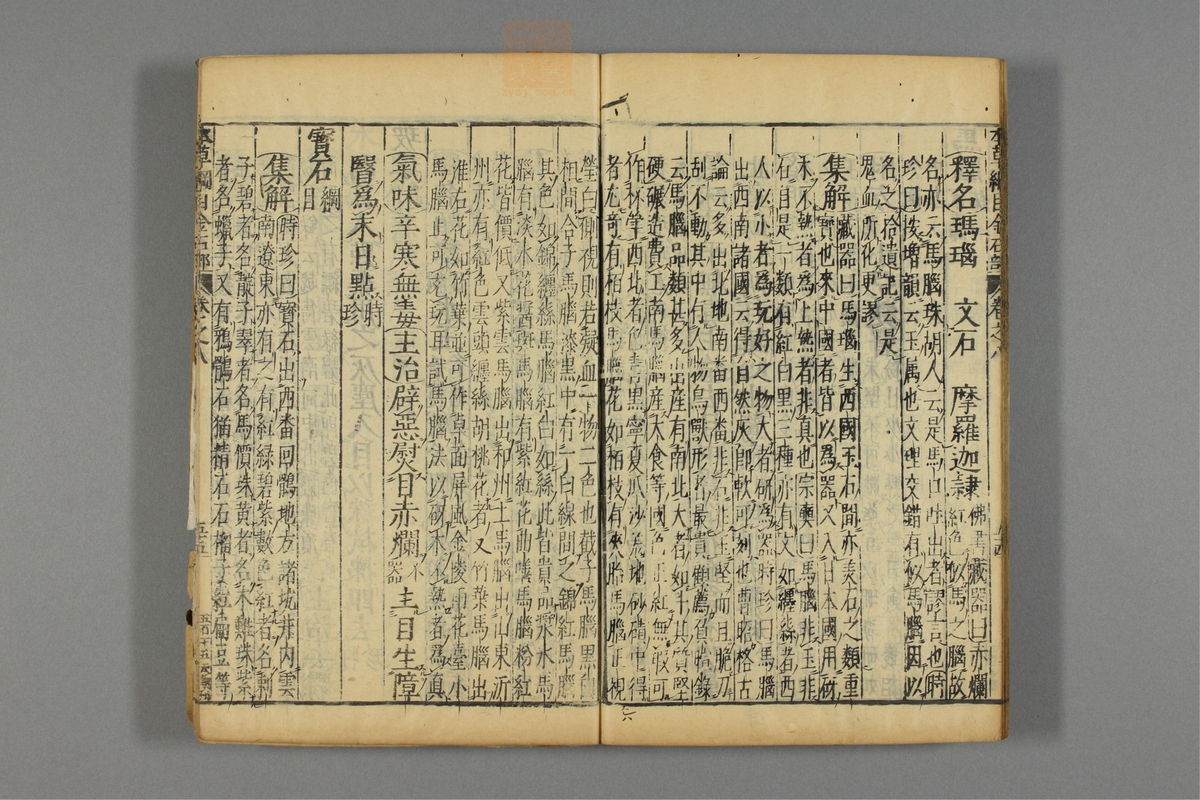 釋名瑪瑙 文石 摩羅迦隸佛書藏器曰赤爛
紅色似馬之腦故
名亦云馬腦珠胡人云是馬口吐出者謬言也時
珍曰按增韻云玉屬也文理交錯有似馬腦因以
名之拾遺記云是
鬼血所化更謬
集解藏器曰馬瑙生西國玉石間亦美石之類重
寶也來中國者皆以為器又入日本國用砑
木不熱者為上熱者非真也宗奭曰馬腦非玉非
石自是一類有紅白黑三種亦有文如纏絲者西
人以小者為玩好之物大者碾為器時珍曰馬腦
出西南諸國云得自然灰即軟可刻也曹昭格古
論云多出北地南番西番非石非玉堅而且脆刀
刮不動其中有人物鳥獸形者最貴顧薦負暄錄
云馬腦品類甚多出產有南北大者如斗其質堅
硬碾造費工南馬腦產大食等國色正紅無瑕可
作杯斝西北者色青黑寧夏瓜沙羌地砂磧中得
者尤奇有栢枝馬腦花如栢枝有夾胎馬腦正視
瑩白側視則若凝血一物二色也截子馬腦黑白
相間合子馬腦漆黑中有一白線間之錦紅馬腦
其色如錦纏絲馬腦紅白如絲此皆貴品漿水馬
腦有淡水花醬斑馬腦有紫紅花曲蟮馬腦粉紅
花皆價低又紫雲馬腦出和州土馬腦出山東沂
州亦有紅色雲頭纏絲胡桃花者又竹葉馬腦出
淮右花如竹葉並可作桌面屏風金陵雨花臺小
馬腦止可充玩耳試馬腦法以砑木不熱者為真
氣味辛寒無毒主治辟惡熨目赤爛藏器主目生障
瞖為末日點時珍
寶石綱目
集解時珍曰寶石出西番回鶻地方諸坑井內雲
南遼東亦有之有紅綠碧紫數色紅者名刺
子碧者名靛子翠者名馬價珠黃者名木難珠紫
者名蠟子又有鴉鶻石猫精石石榴子紅扁豆等
本草綱目金石部 卷之八